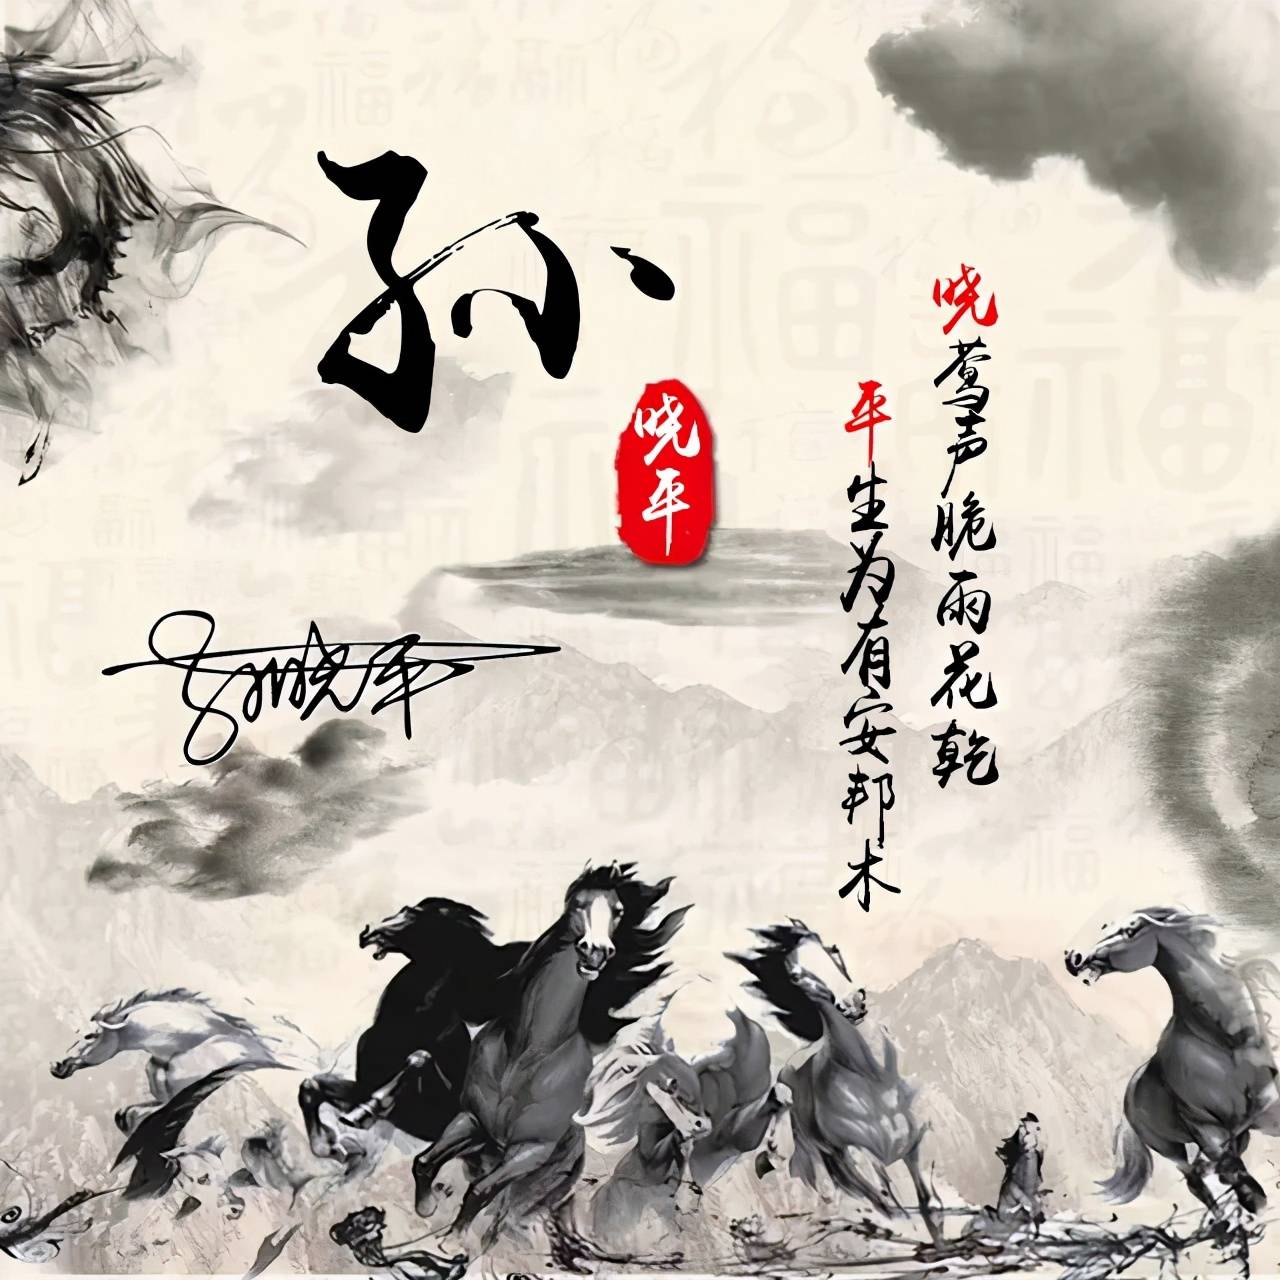 孙
晓平
晓莺声脆雨花乾
平生为有安邦木
孙晓平